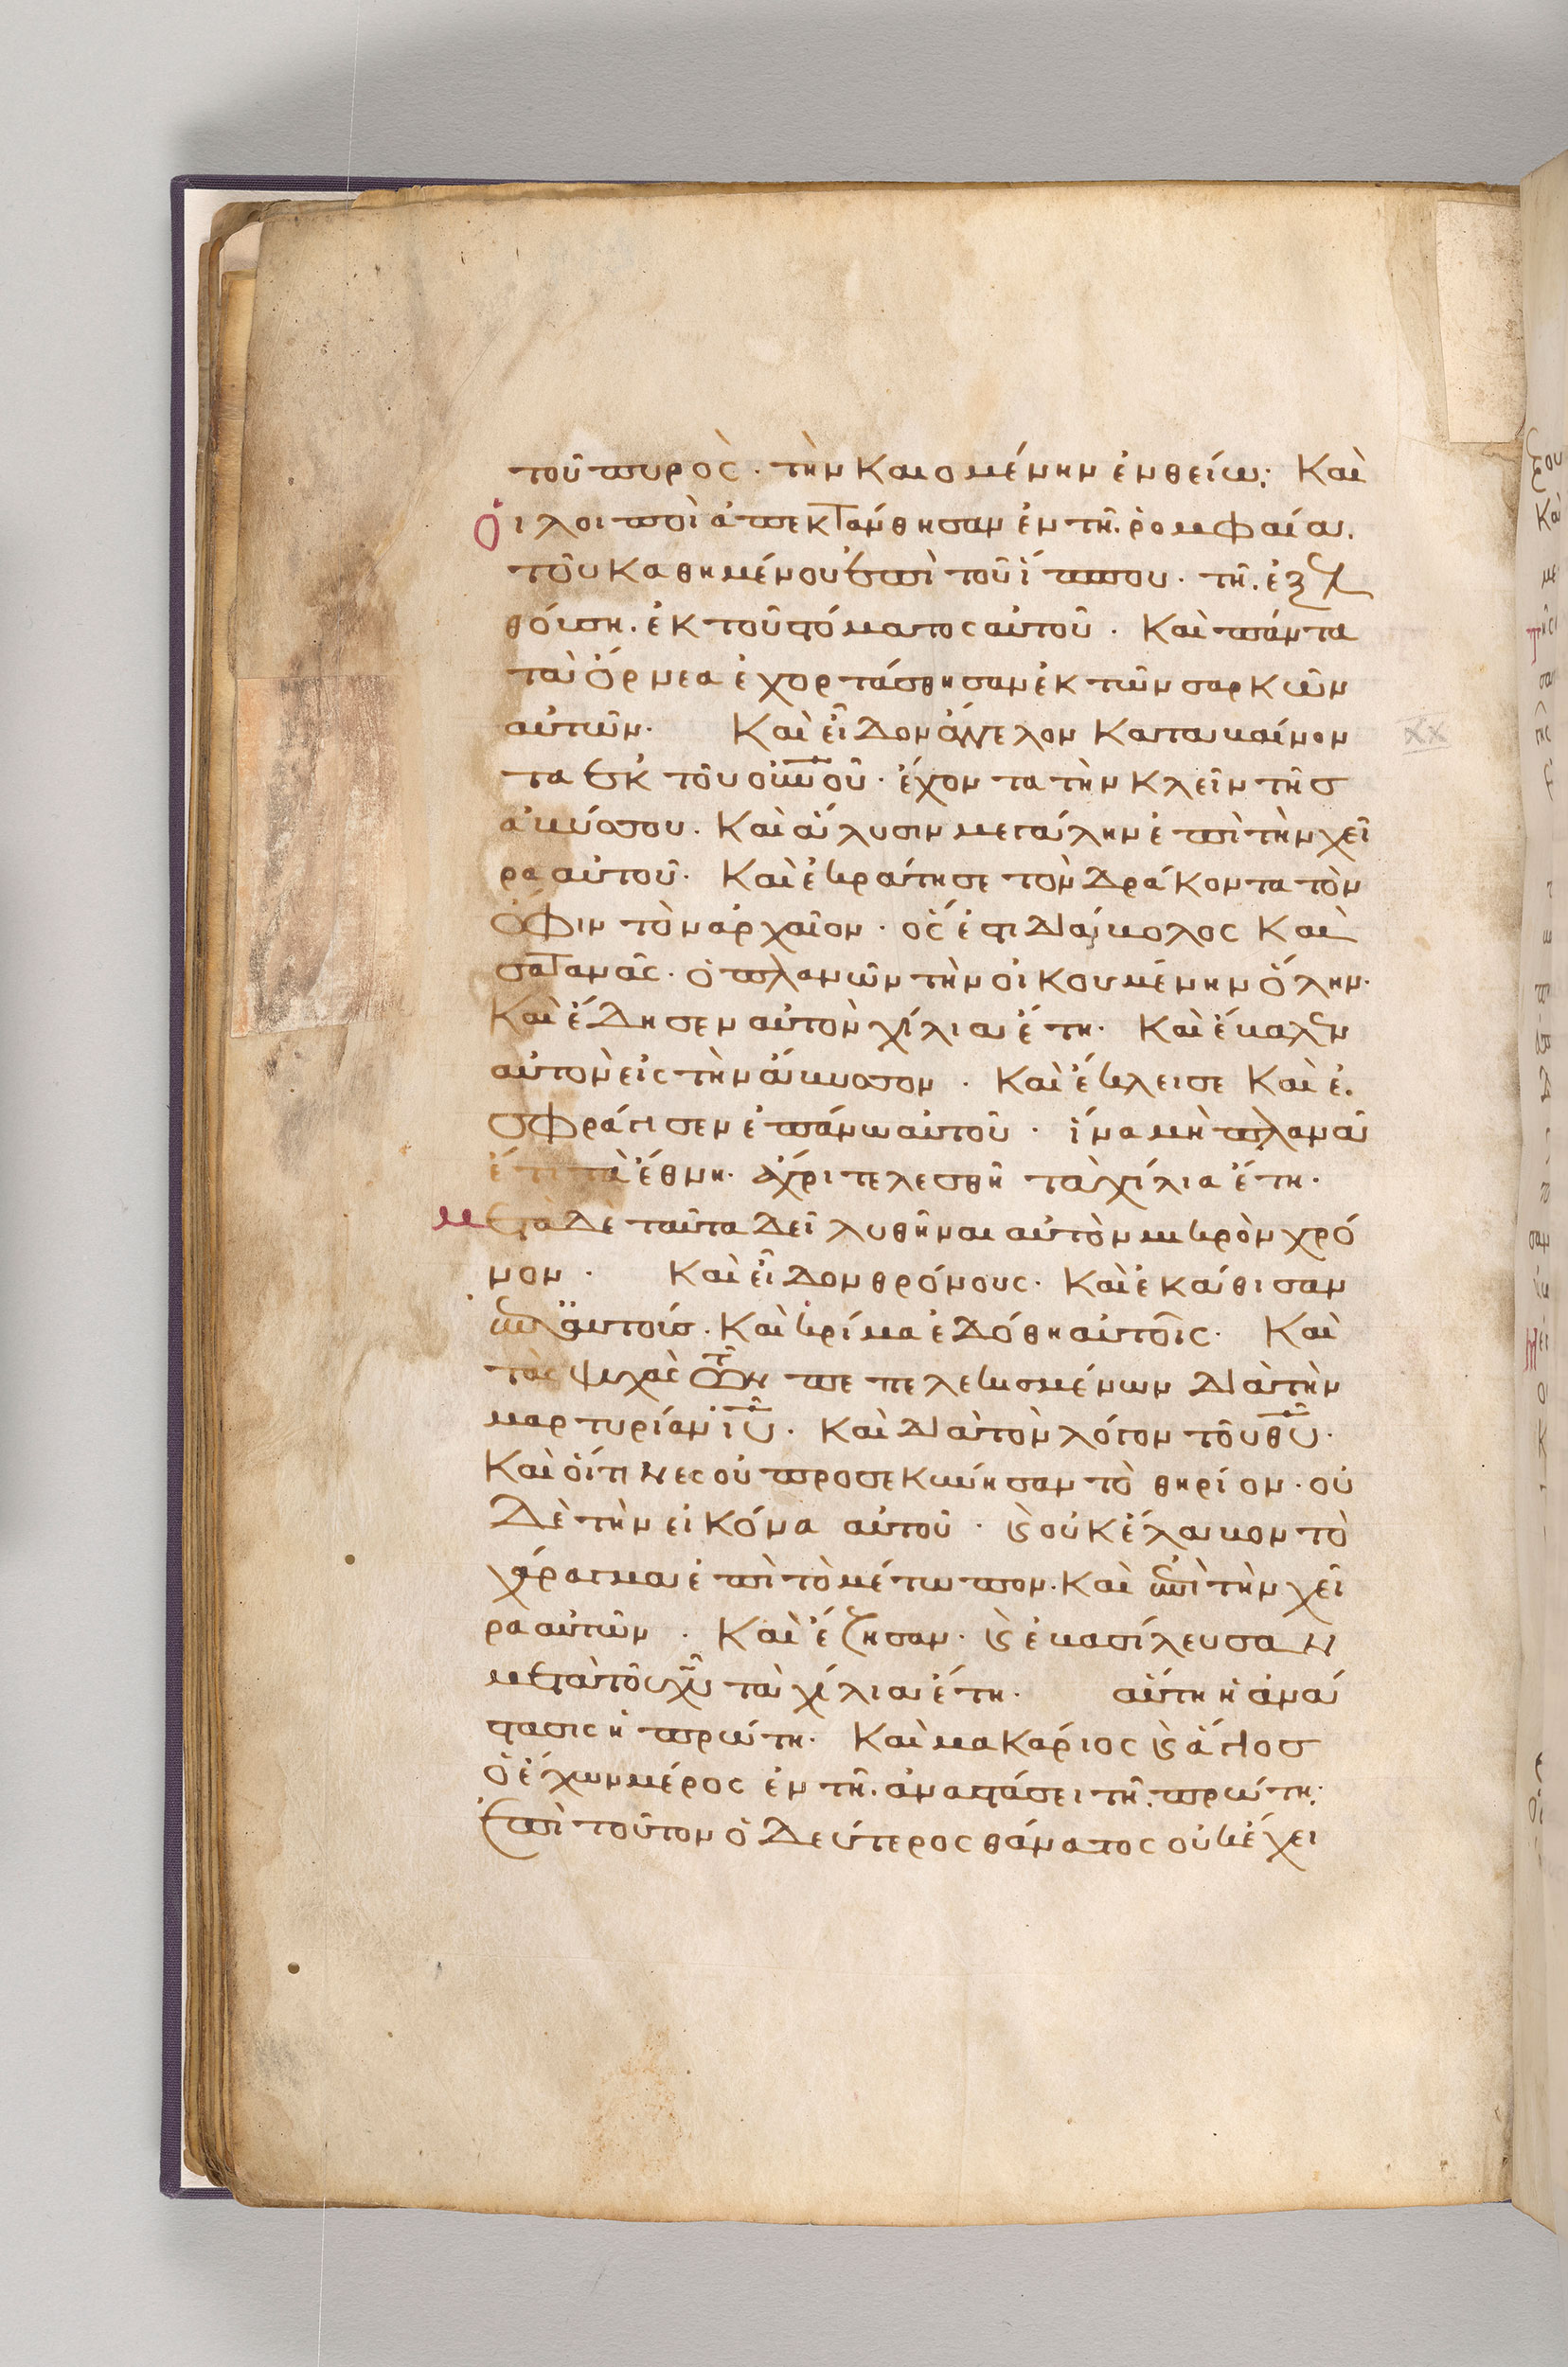 τοῦ πυρὸς · τὴν καιομένην ἐν θείω· Καὶ
ὁι λοιποὶ ἀπεκτάνθησαν ἐν τῆ ρομφαία.
τοῦ καθημένου ἐπὶ τοῦ ἵππου · τῆ ἐξελ
θόυση · ἐκ τοῦ στόματος αὐτοῦ · Καὶ πάντα
τὰ ὄρνεα ἐχορτάσθησαν ἐκ τῶν σαρκῶν
αὐτῶν · Καὶ εἶδον ἄγγελον καταβαίνον
τα ἐκ τοῦ οὐνοῦ · ἔχοντα τὴν κλεῖν τῆς
ἀβύσσου · Καὶ ἄλυσιν μεγάλην ἐπὶ τὴν χεῖ
ρα αὐτοῦ · Καὶ ἐκράτησε τὸν δράκοντα τὸν
ὄφιν τὸν ἀρχαῖον · ὅς ἐστι διάβολος Καὶ
σατανᾶς · ὁ πλανῶν τὴν οἰκουμένην ὅλην ·
Καὶ ἔδησεν αὐτὸν χίλια ἔτη · Καὶ ἔβαλεν
αὐτὸν εἰς τὴν ἄβυσσον · Καὶ ἔκλεισε Καὶ ἐ
σφράγισεν ἐπάνω αὐτοῦ · ἵνα μὴ πλανᾶ
ἔτι τὰ ἔθνη · ἄχρι τελεσθῆ τὰ χίλια ἔτη ·
μετὰ δὲ ταῦτα δεῖ λυθῆναι αὐτὸν μικρὸν χρό
νον · Καὶ εἶδον θρόνους · Καὶ ἐκάθισαν
ἐπ αὐτούς · Καὶ κρίμα ἐδόθη αὐτοῖς · Καὶ
τὰς ψυχὰς τῶν πεπελεκισμένων διὰ τὴν
μαρτυρίαν ἰῦ · Καὶ διὰ τὸν λόγον τοῦ θῦ ·
Καὶ ὅιτινες οὐ προσεκύνησαν τὸ θηρίον · οὐ
δὲ τὴν εἰκόνα αὐτοῦ · ϗ οὐκ ἔλαβον τὸ
χάραγμα ἐπὶ τὸ μέτωπον · Καὶ ἐπὶ τὴν χεῖ
ρα αὐτῶν · Καὶ ἔζησαν · ϗ ἐβασίλευσαν
μετὰ τοῦ χῦ τὰ χίλια ἔτη · αὕτη ἡ ἀνά
στασις ἡ πρώτη · Καὶ μακάριος ϗ ἅγιος
ὁ ἔχων μέρος ἐν τῆ ἀναστάσει τῆ πρώτη ·
ἐπὶ τοῦτον ὁ δεύτερος θάνατος οὐκ ἔχει
xx